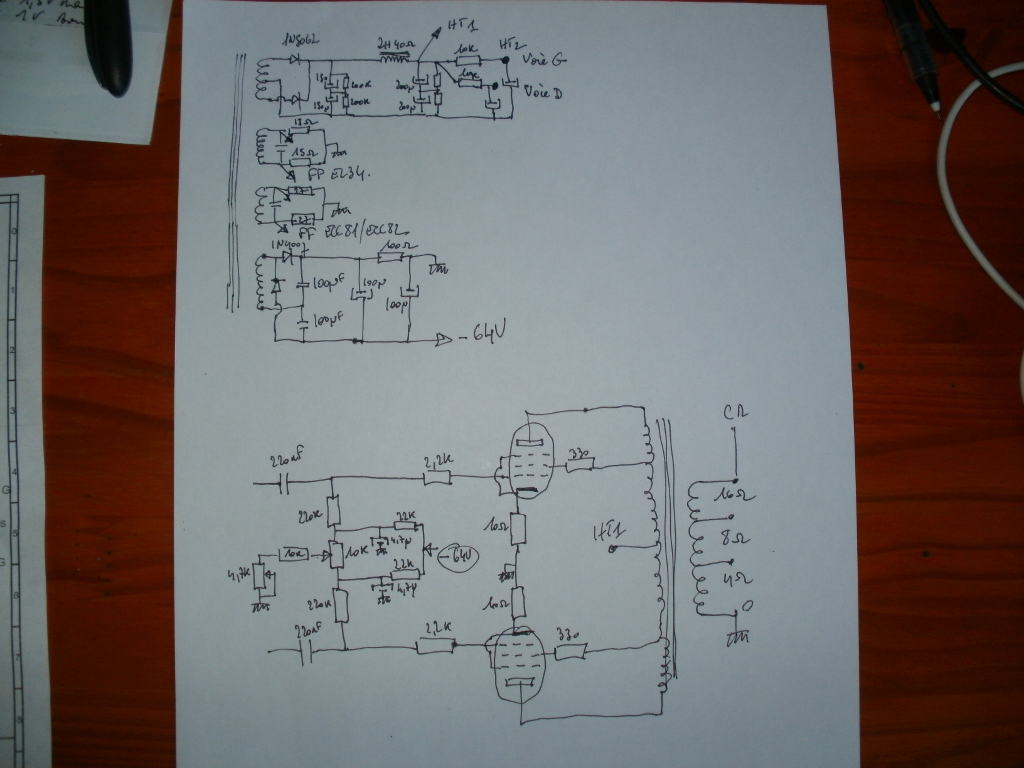 HT1
1N5062
2H 40Ω
10K
HT2
Voie G
Voie D
100K
200µ
100K
200µ
15Ω
15Ω
FF EL34.
FF ECC81/ECC82
1N4007
100Ω
100µF
100µ
100µ
100µF
-64V
CR
220nF
2,2K
330
16Ω
220K
22K
4,7µ
10Ω
HT1
8Ω
10K
10K
-64V
4,7K
22K
4Ω
4,7µ
220K
10Ω
0
220nF
2,2K
330